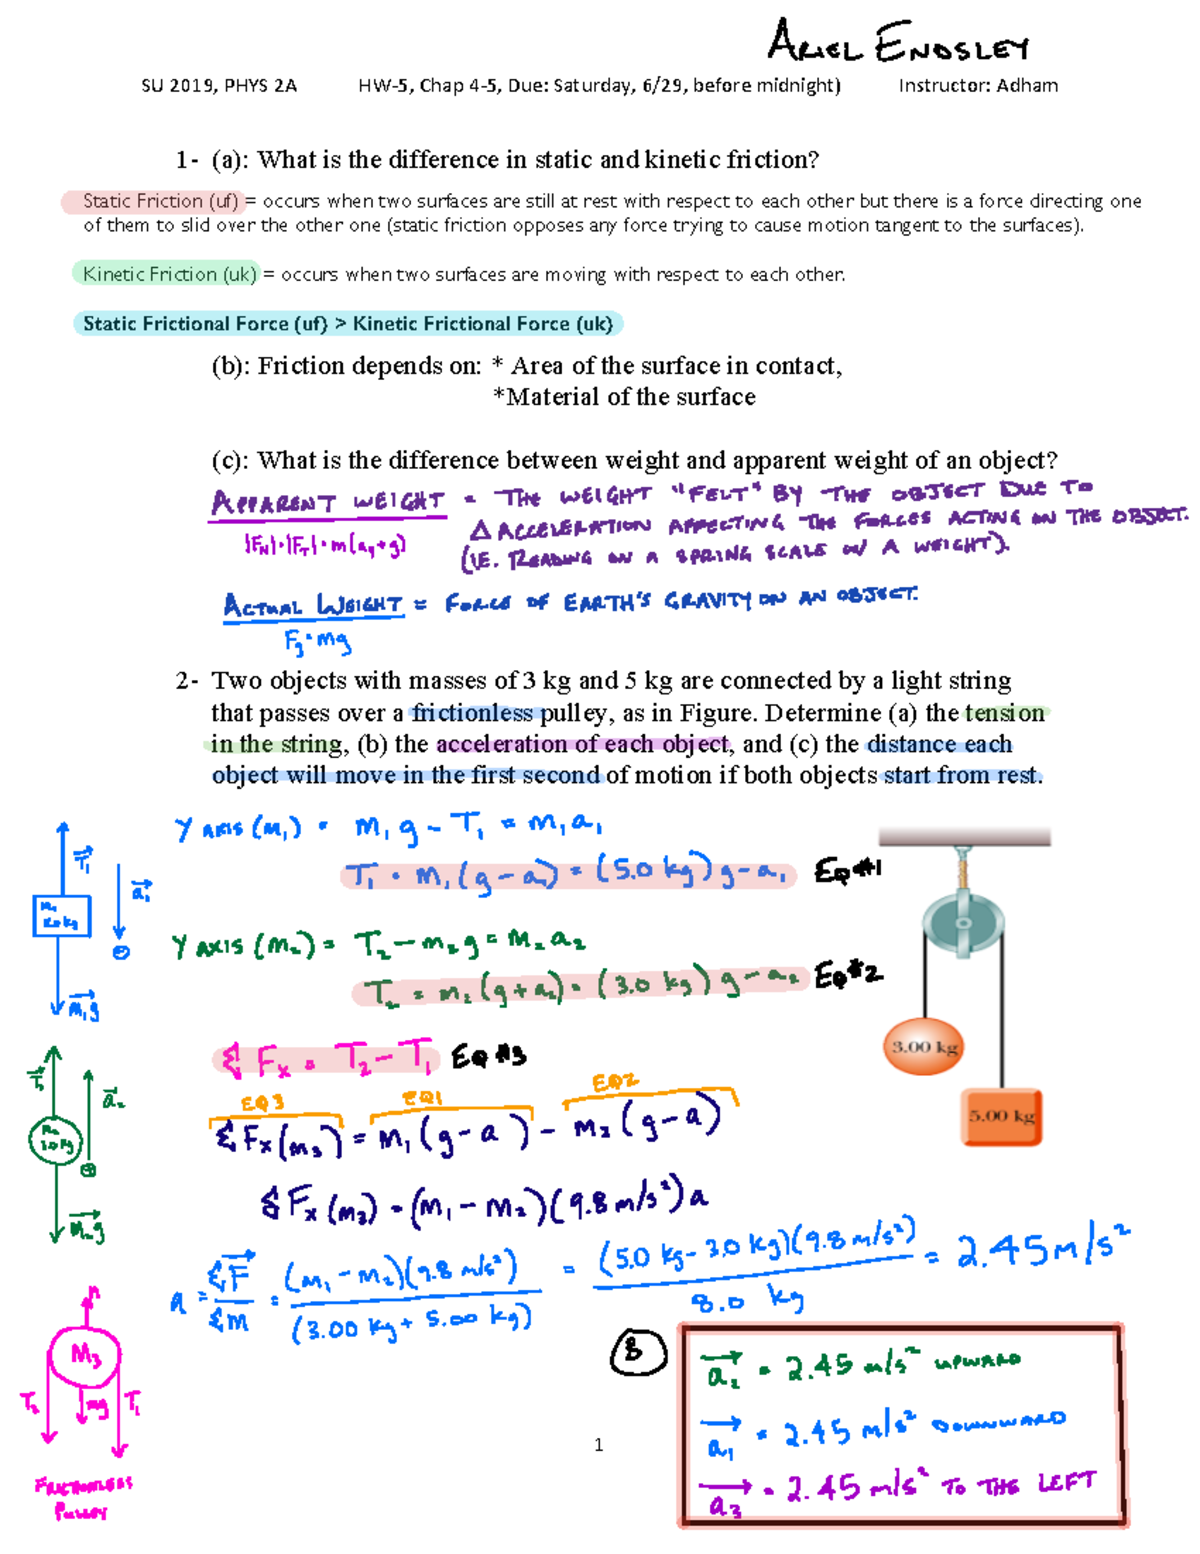 ARIEL ENDSLEY
SU 2019, PHYS 2A HW-5, Chap 4-5, Due: Saturday, 6/29, before midnight) Instructor: Adham
1- (a): What is the difference in static and kinetic friction?
Static Friction (uf) = occurs when two surfaces are still at rest with respect to each other but there is a force directing one
of them to slid over the other one (static friction opposes any force trying to cause motion tangent to the surfaces).
Kinetic Friction (uk) = occurs when two surfaces are moving with respect to each other.
Static Frictional Force (uf) > Kinetic Frictional Force (uk)
(b): Friction depends on: * Area of the surface in contact,
*Material of the surface
(c): What is the difference between weight and apparent weight of an object?
APPARENT WEIGHT = THE WEIGHT "FELT" BY THE OBJECT DUE TO
Δ ACCELERATION AFFECTING THE FORCES ACTING ON THE OBJECT.
|FN| = |FT| = m(ay+g)
(IE. READING ON A SPRING SCALE W/ A WEIGHT).
ACTUAL WEIGHT = FORCE OF EARTH'S GRAVITY ON AN OBJECT.
Fg = mg
2- Two objects with masses of 3 kg and 5 kg are connected by a light string
that passes over a frictionless pulley, as in Figure. Determine (a) the tension
in the string, (b) the acceleration of each object, and (c) the distance each
object will move in the first second of motion if both objects start from rest.
Y AXIS (m₁) = m₁g - T₁ = m₁a₁
T₁ = m₁(g-a₁) = (5.0 kg)g-a₁ EQ#1
T₁
a₁
m₁
m₁g
Y AXIS (m₂) = T₂ - m₂g = m₂a₂
T₂ = m₂(g+a₂) = (3.0 kg)g-a₂ EQ#2
3.00 kg
5.00 kg
Σ Fx = T₂ - T₁ EQ#3
a₂
m₂g
EQ3 EQ1 EQ2
ΣFx(m₃) = m₁(g-a) - m₂(g-a)
ΣFx(m₃) = (m₁ - m₂)(9.8 m/s²)a
a = ΣF/Σm = (m₁-m₂)(9.8 m/s²)/(3.00 kg + 5.00 kg) = (5.0 kg - 3.0 kg)(9.8 m/s²)/8.0 kg = 2.45 m/s²
n
M₃
T₂ mg T₁
FRICTIONLESS
PULLEY
B
a₂ = 2.45 m/s² UPWARD
a₁ = 2.45 m/s² DOWNWARD
a₃ = 2.45 m/s² TO THE LEFT
1